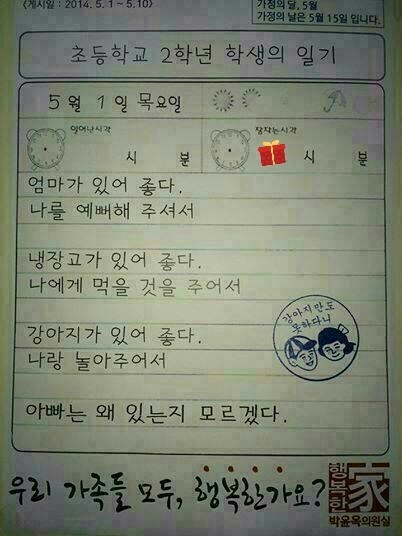 (게시일 : 2014. 5. 1 ~ 5.10)
가정의 달, 5월
가정의 날은 5월 15일 입니다.
초등학교 2학년 학생의 일기
5월 1일 목요일
일어난시각
시 분
잠자는시각
시 분
엄마가 있어 좋다.
나를 예뻐해 주셔서
냉장고가 있어 좋다.
나에게 먹을 것을 주어서
강아지가 있어 좋다.
나랑 놀아주어서
강아지만도
못하다니
아빠는 왜 있는지 모르겠다.
우리 가족들 모두, 행복한가요?
행복한
家
박윤옥의원실